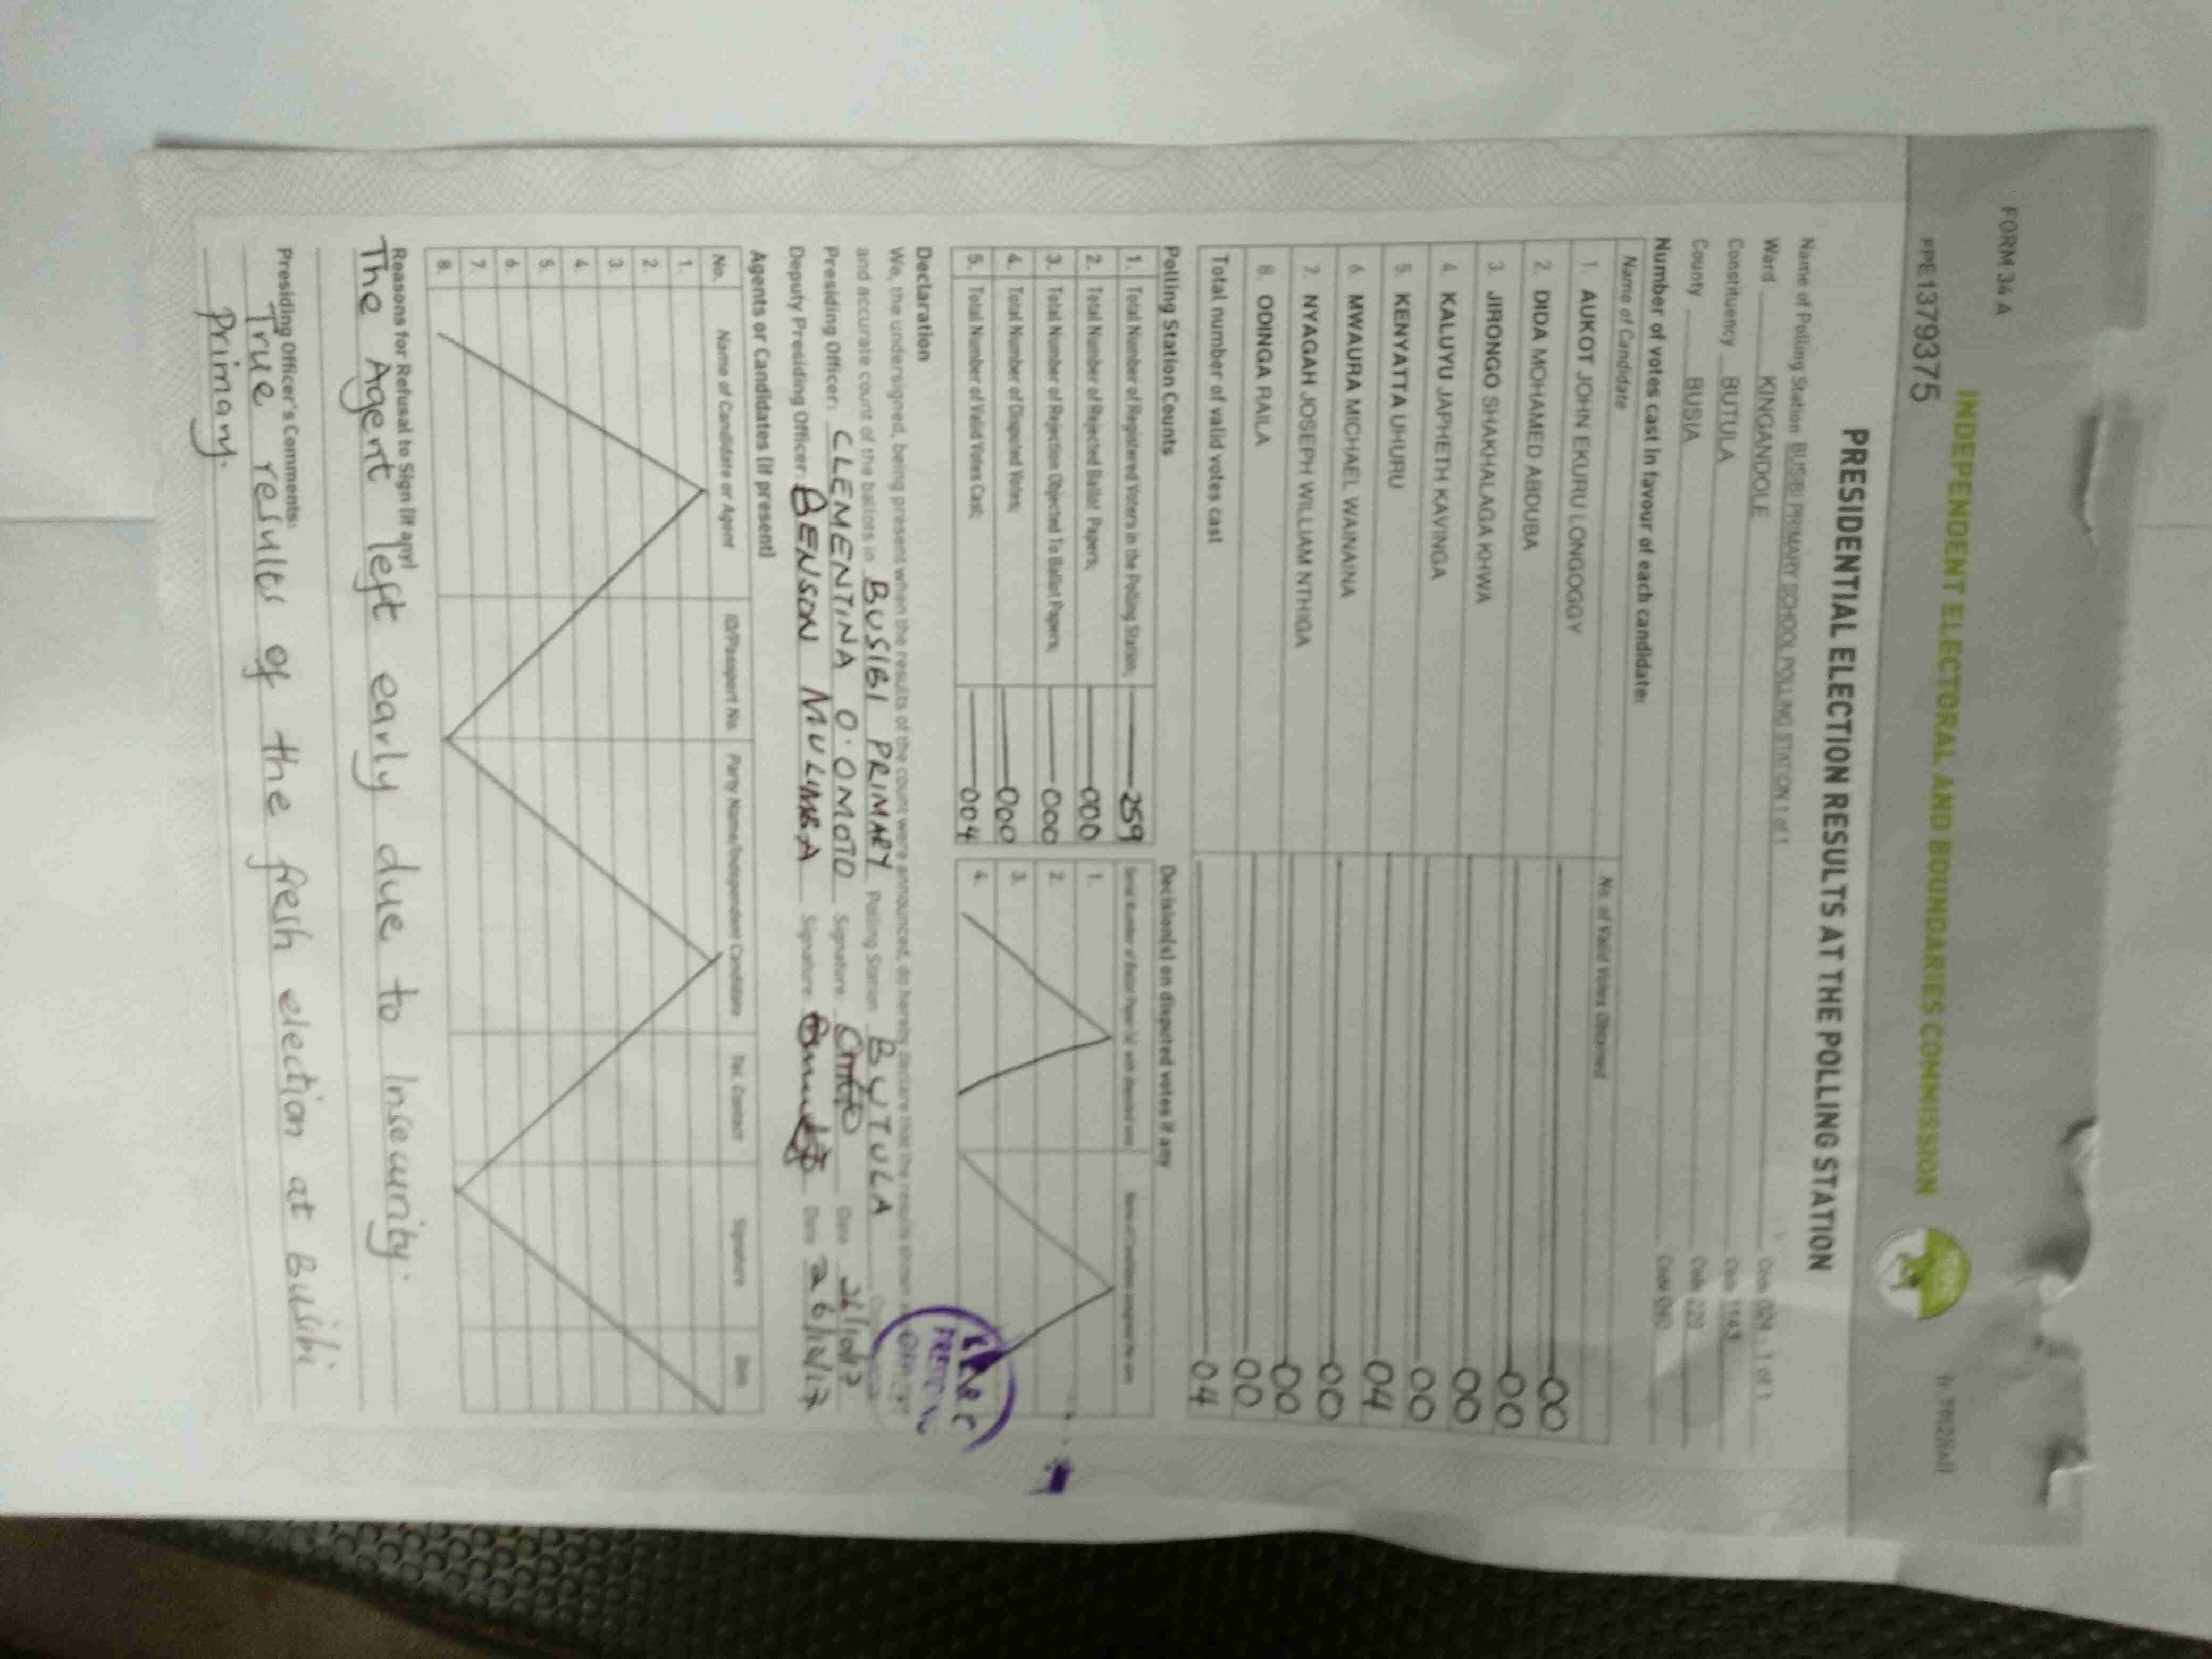 FORM 34 A
INDEPENDENT ELECTORAL AND BOUNDARIES COMMISSION
PPE1379375
PRESIDENTIAL ELECTION RESULTS AT THE POLLING STATION
Name of Polling Station BUSIBI PRIMARY SCHOOL POLLING STATION 1 of 1
Ward KINGANDOLE Code 024 1 of 1
Constituency BUTULA Code 1143
County BUSIA Code
Number of votes cast in favour of each candidate:
Name of Candidate No. of Valid Votes Obtained
1. AUKOT JOHN EKURU LONGOGGY 00
2. DIDA MOHAMED ABDUBA 00
3. JIRONGO SHAKHALAGA KHWA 00
4. KALUYU JAPHETH KAVINGA 00
5. KENYATTA UHURU 04
6. MWAURA MICHAEL WAINAINA 00
7. NYAGAH JOSEPH WILLIAM NTHIGA 00
8. ODINGA RAILA 00
Total number of valid votes cast 04
Polling Station Counts
1. Total Number of Registered Voters in the Polling Station; 259
2. Total Number of Rejected Ballot Papers; 000
3. Total Number of Rejection Objected To Ballot Papers; 000
4. Total Number of Disputed Votes; 000
5. Total Number of Valid Votes Cast; 004
Decision(s) on disputed votes if any
1.
2.
3.
4.
Declaration
We, the undersigned, being present when the results of the count were announced, do hereby declare that the results shown
and accurate count of the ballots in BUSIBI PRIMARY Polling Station BUTULA
Presiding Officer: CLEMENTINA O. OMOTO Signature Date
Deputy Presiding Officer: BENSON MULIMBA Signature: Date 26/10/17
IEBC
PRESIDING
OFFICER
Agents or Candidates (if present)
No. Name of Candidate or Agent ID/Passport No. Party Name/Independent Candidate Tel. Contact Signature Date
1.
2.
3.
4.
5.
6.
7.
8.
Reasons for Refusal to Sign (if any)
The Agent left early due to Insecurity.
Presiding Officer's Comments:
True results of the fresh election at Busibi
Primary.